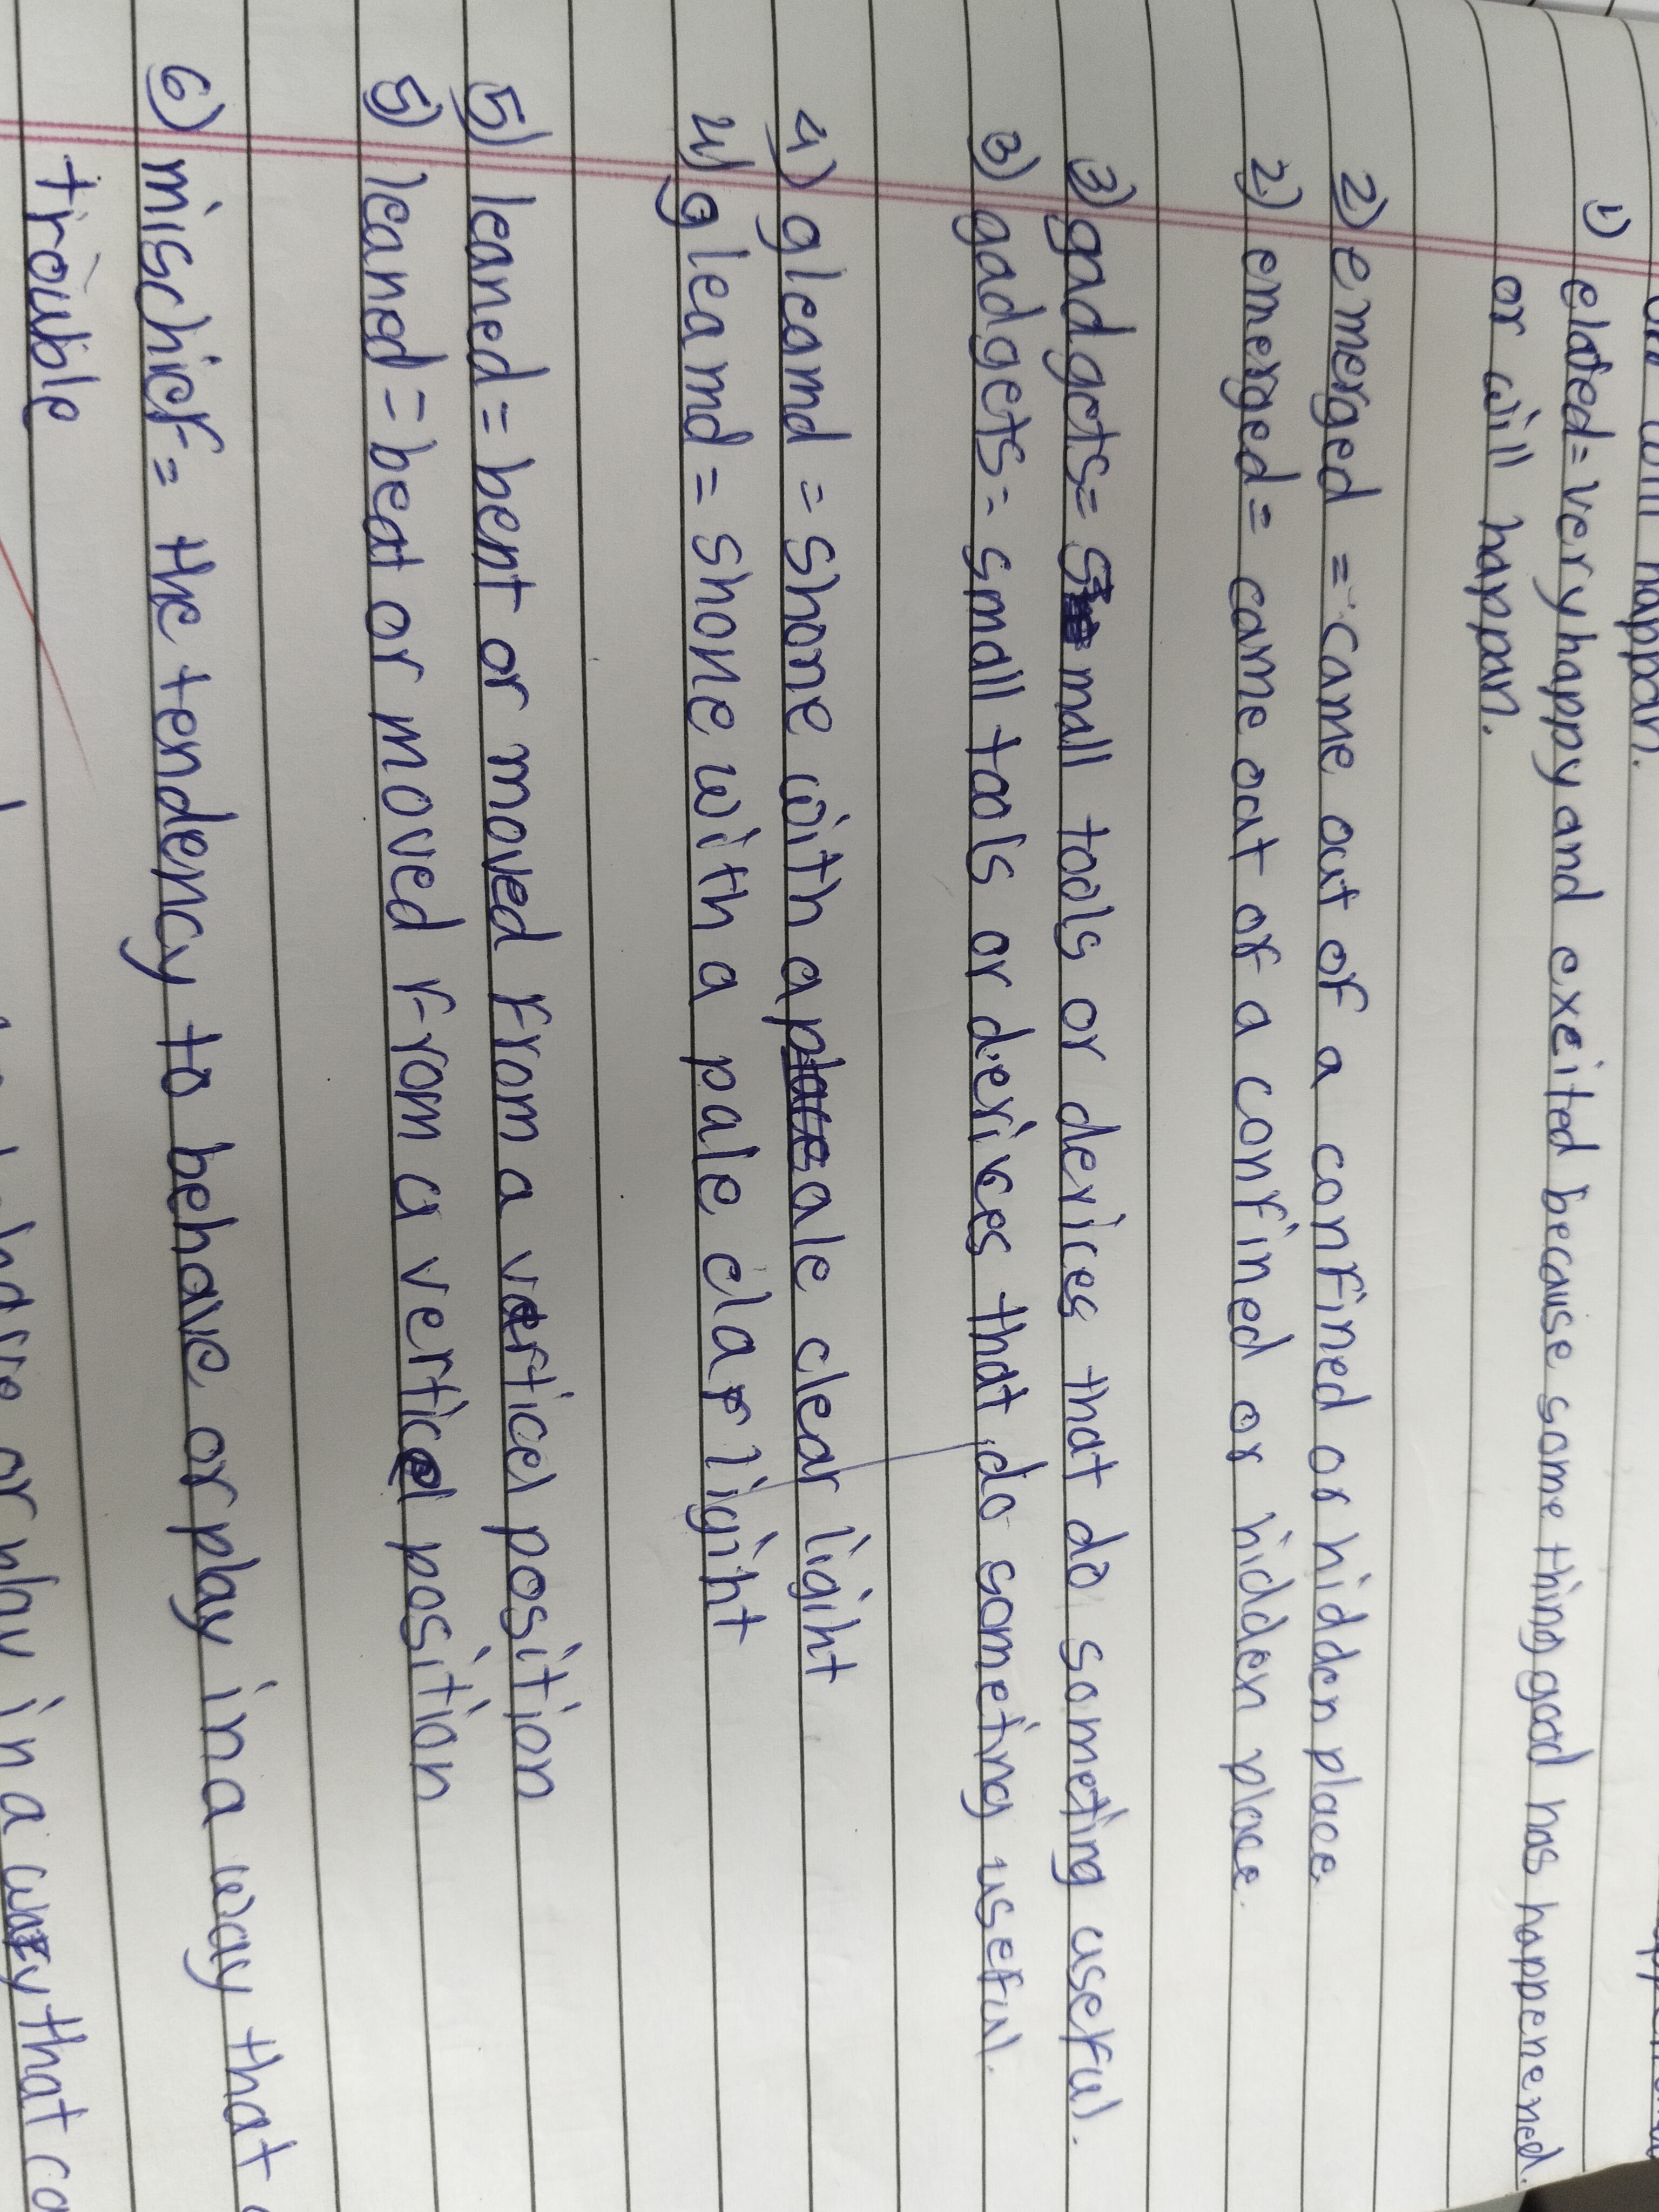 happan.
1) elated= very happy and exeited because some thing good has happenened.
or will happan.
2) emerged = came out of a confined or hidden place
2) emerged= came out of a confined or hidden place.
3) gadgets= small tools or devices that do someting useful.
3) gadgets= small tools or devices that do someting useful.
4) gleamd = shone with a pale clear ligiht
4) gleamd = shone with a pale clar ligiht
5) leaned= bent or moved from a verticel position
5) leaned= beat or moved from a verticel position
6) mischief= the tendency to behave or play in a way that
trouble
or play in a way that ca